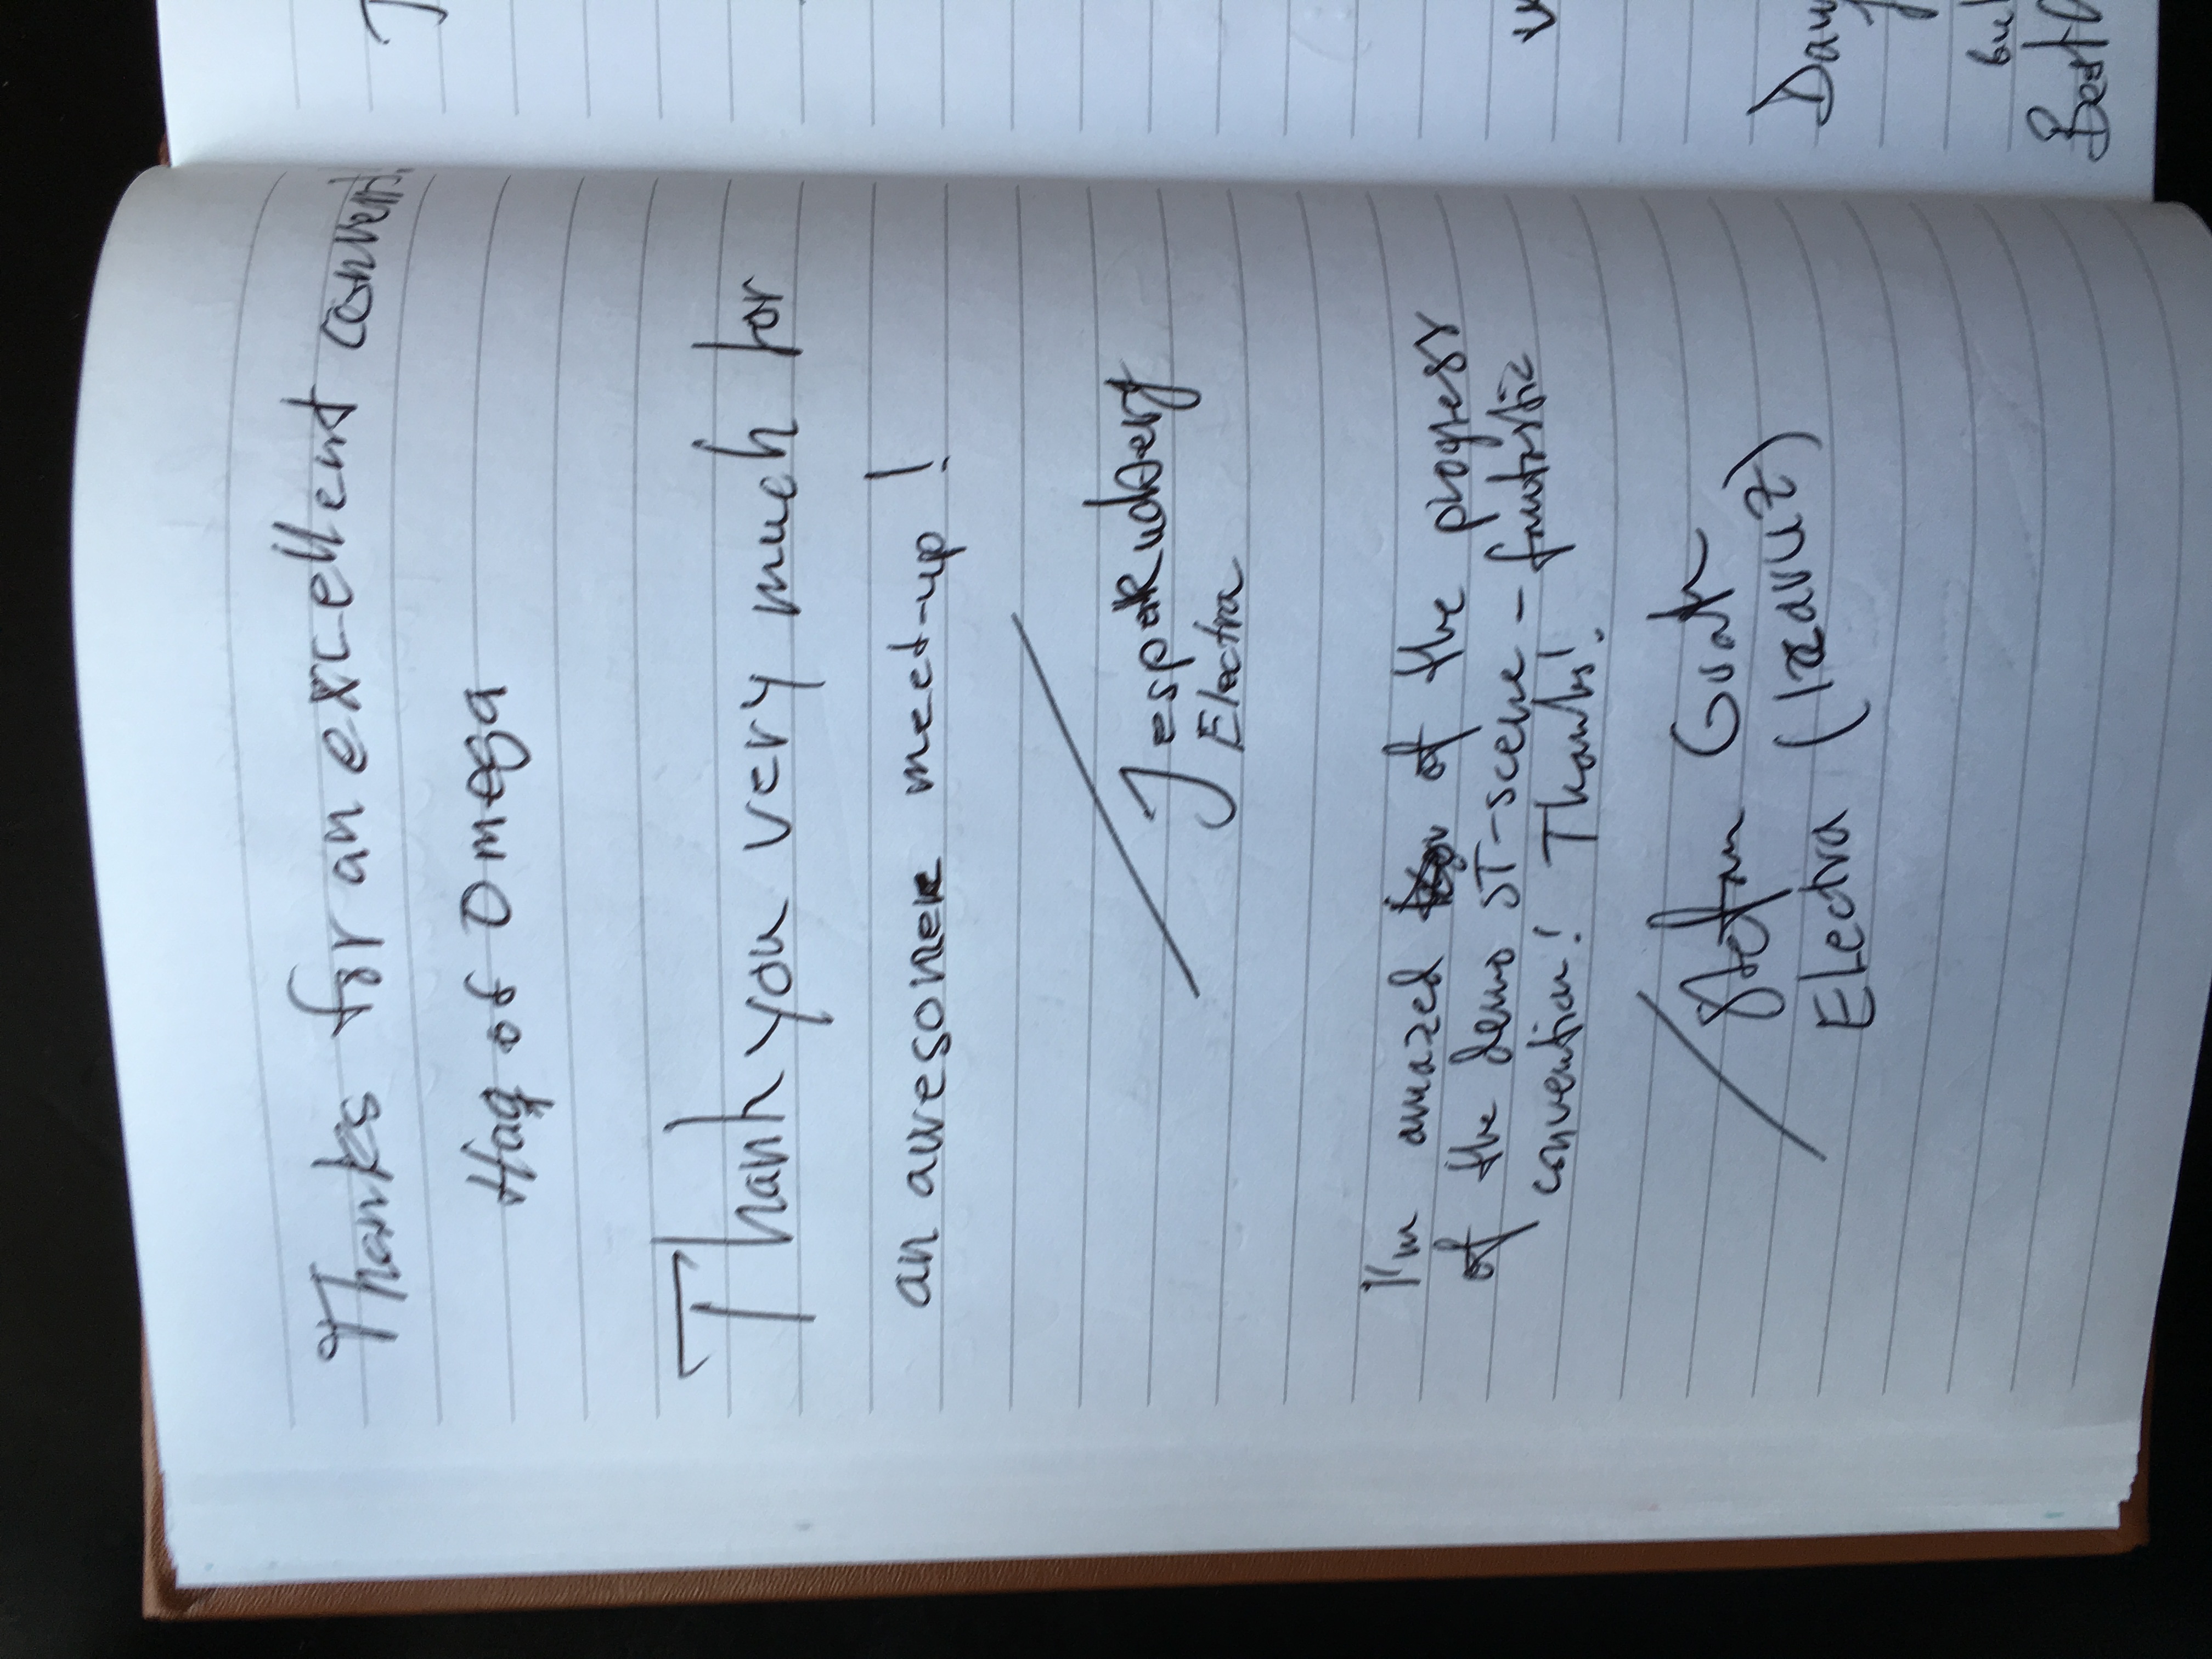 Thanks for an excellent convent.
Haq of Omega
Thank you very much for
an awesome meet-up!
/ Jesper
Electra
I'm amazed of the progress
of the demo ST-scene - fantastic
convention! Thanks!
/ Stefan
Electra (
Dan
Best